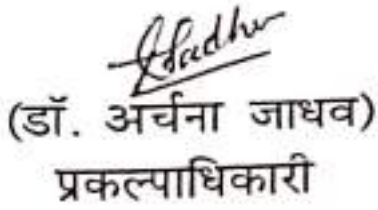 (डॉ. अर्चना जाधव)
प्रकल्पाधिकारी